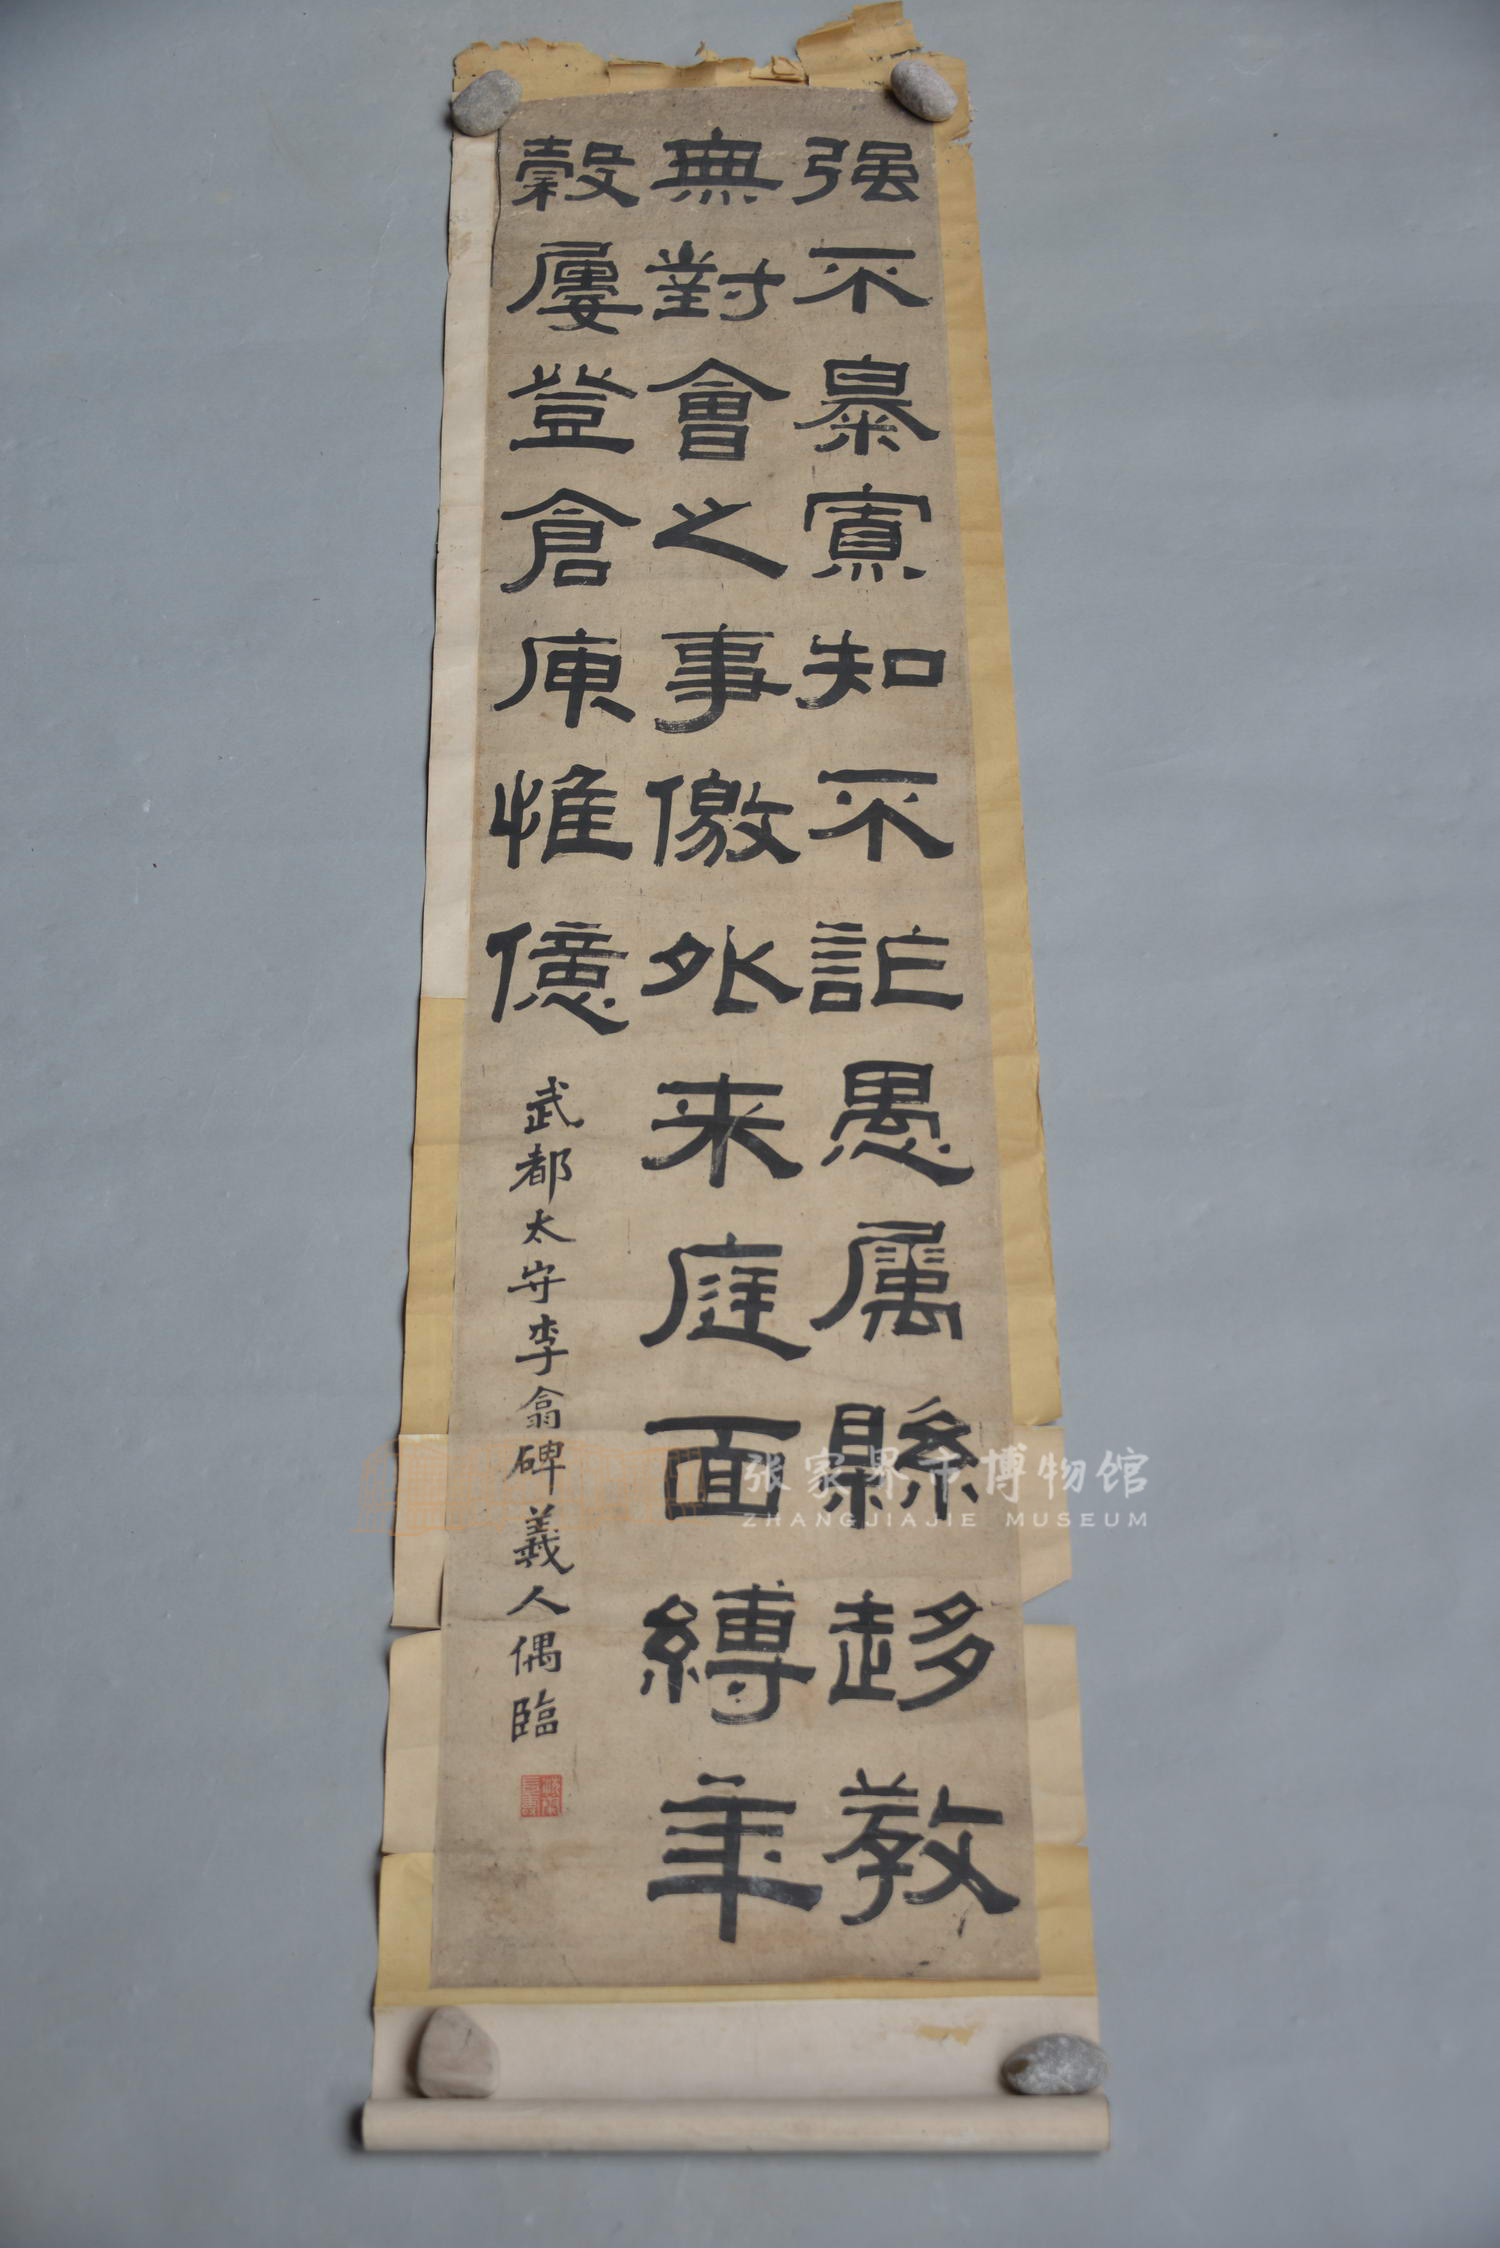 强不暴寡知不詐愚屬縣趍教
無對會之事儌外来庭面縛年
穀屢登倉庾惟億
武都太守李翕碑義人偶臨
张家界市博物馆
ZHANGJIAJIE MUSEUM